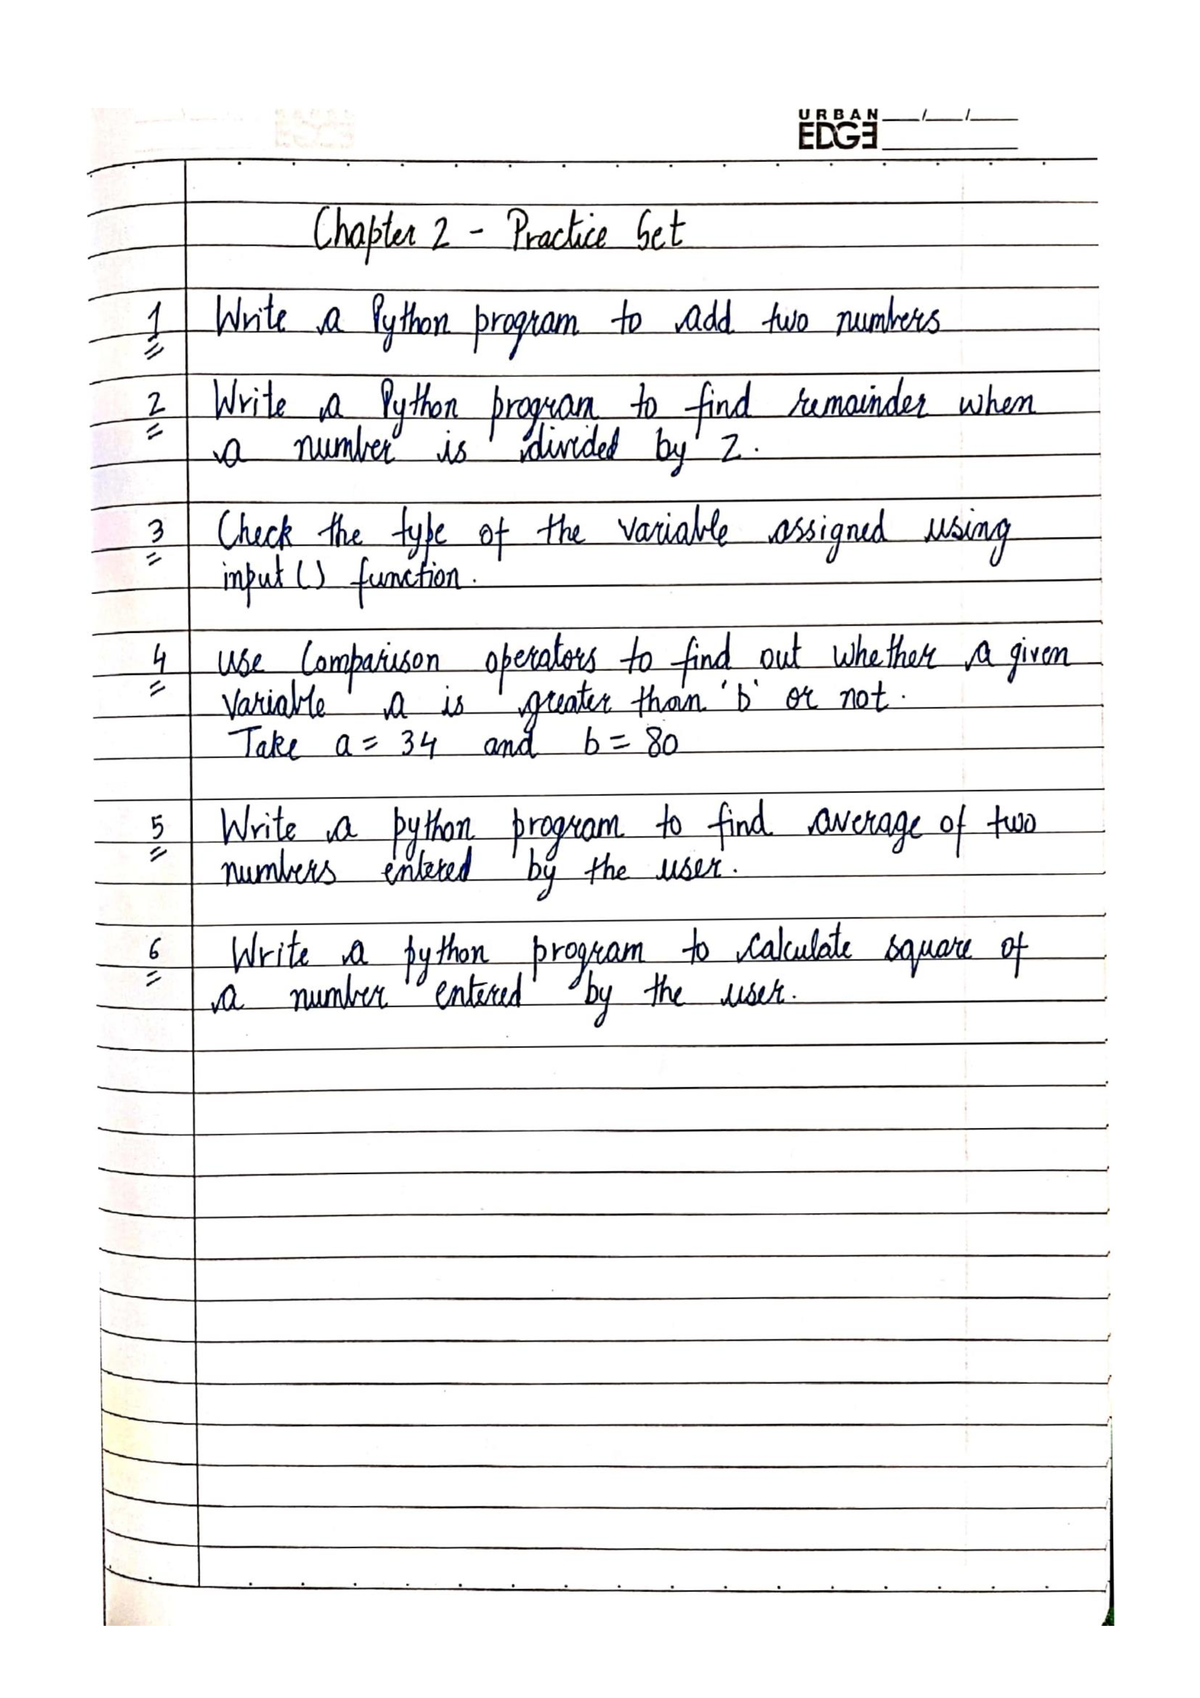 URBAN
EDGE
Chapter 2 - Practice Set
1 Write a Python program to add two numbers
2 Write a Python program to find remainder when
a number is divided by 2.
3 Check the type of the variable assigned using
input () function.
4 use Comparison operators to find out whether a given
variable a is greater than 'b' or not.
Take a = 34 and b = 80
5 Write a python program to find average of two
numbers entered by the user.
6 Write a python program to calculate square of
a number entered by the user.